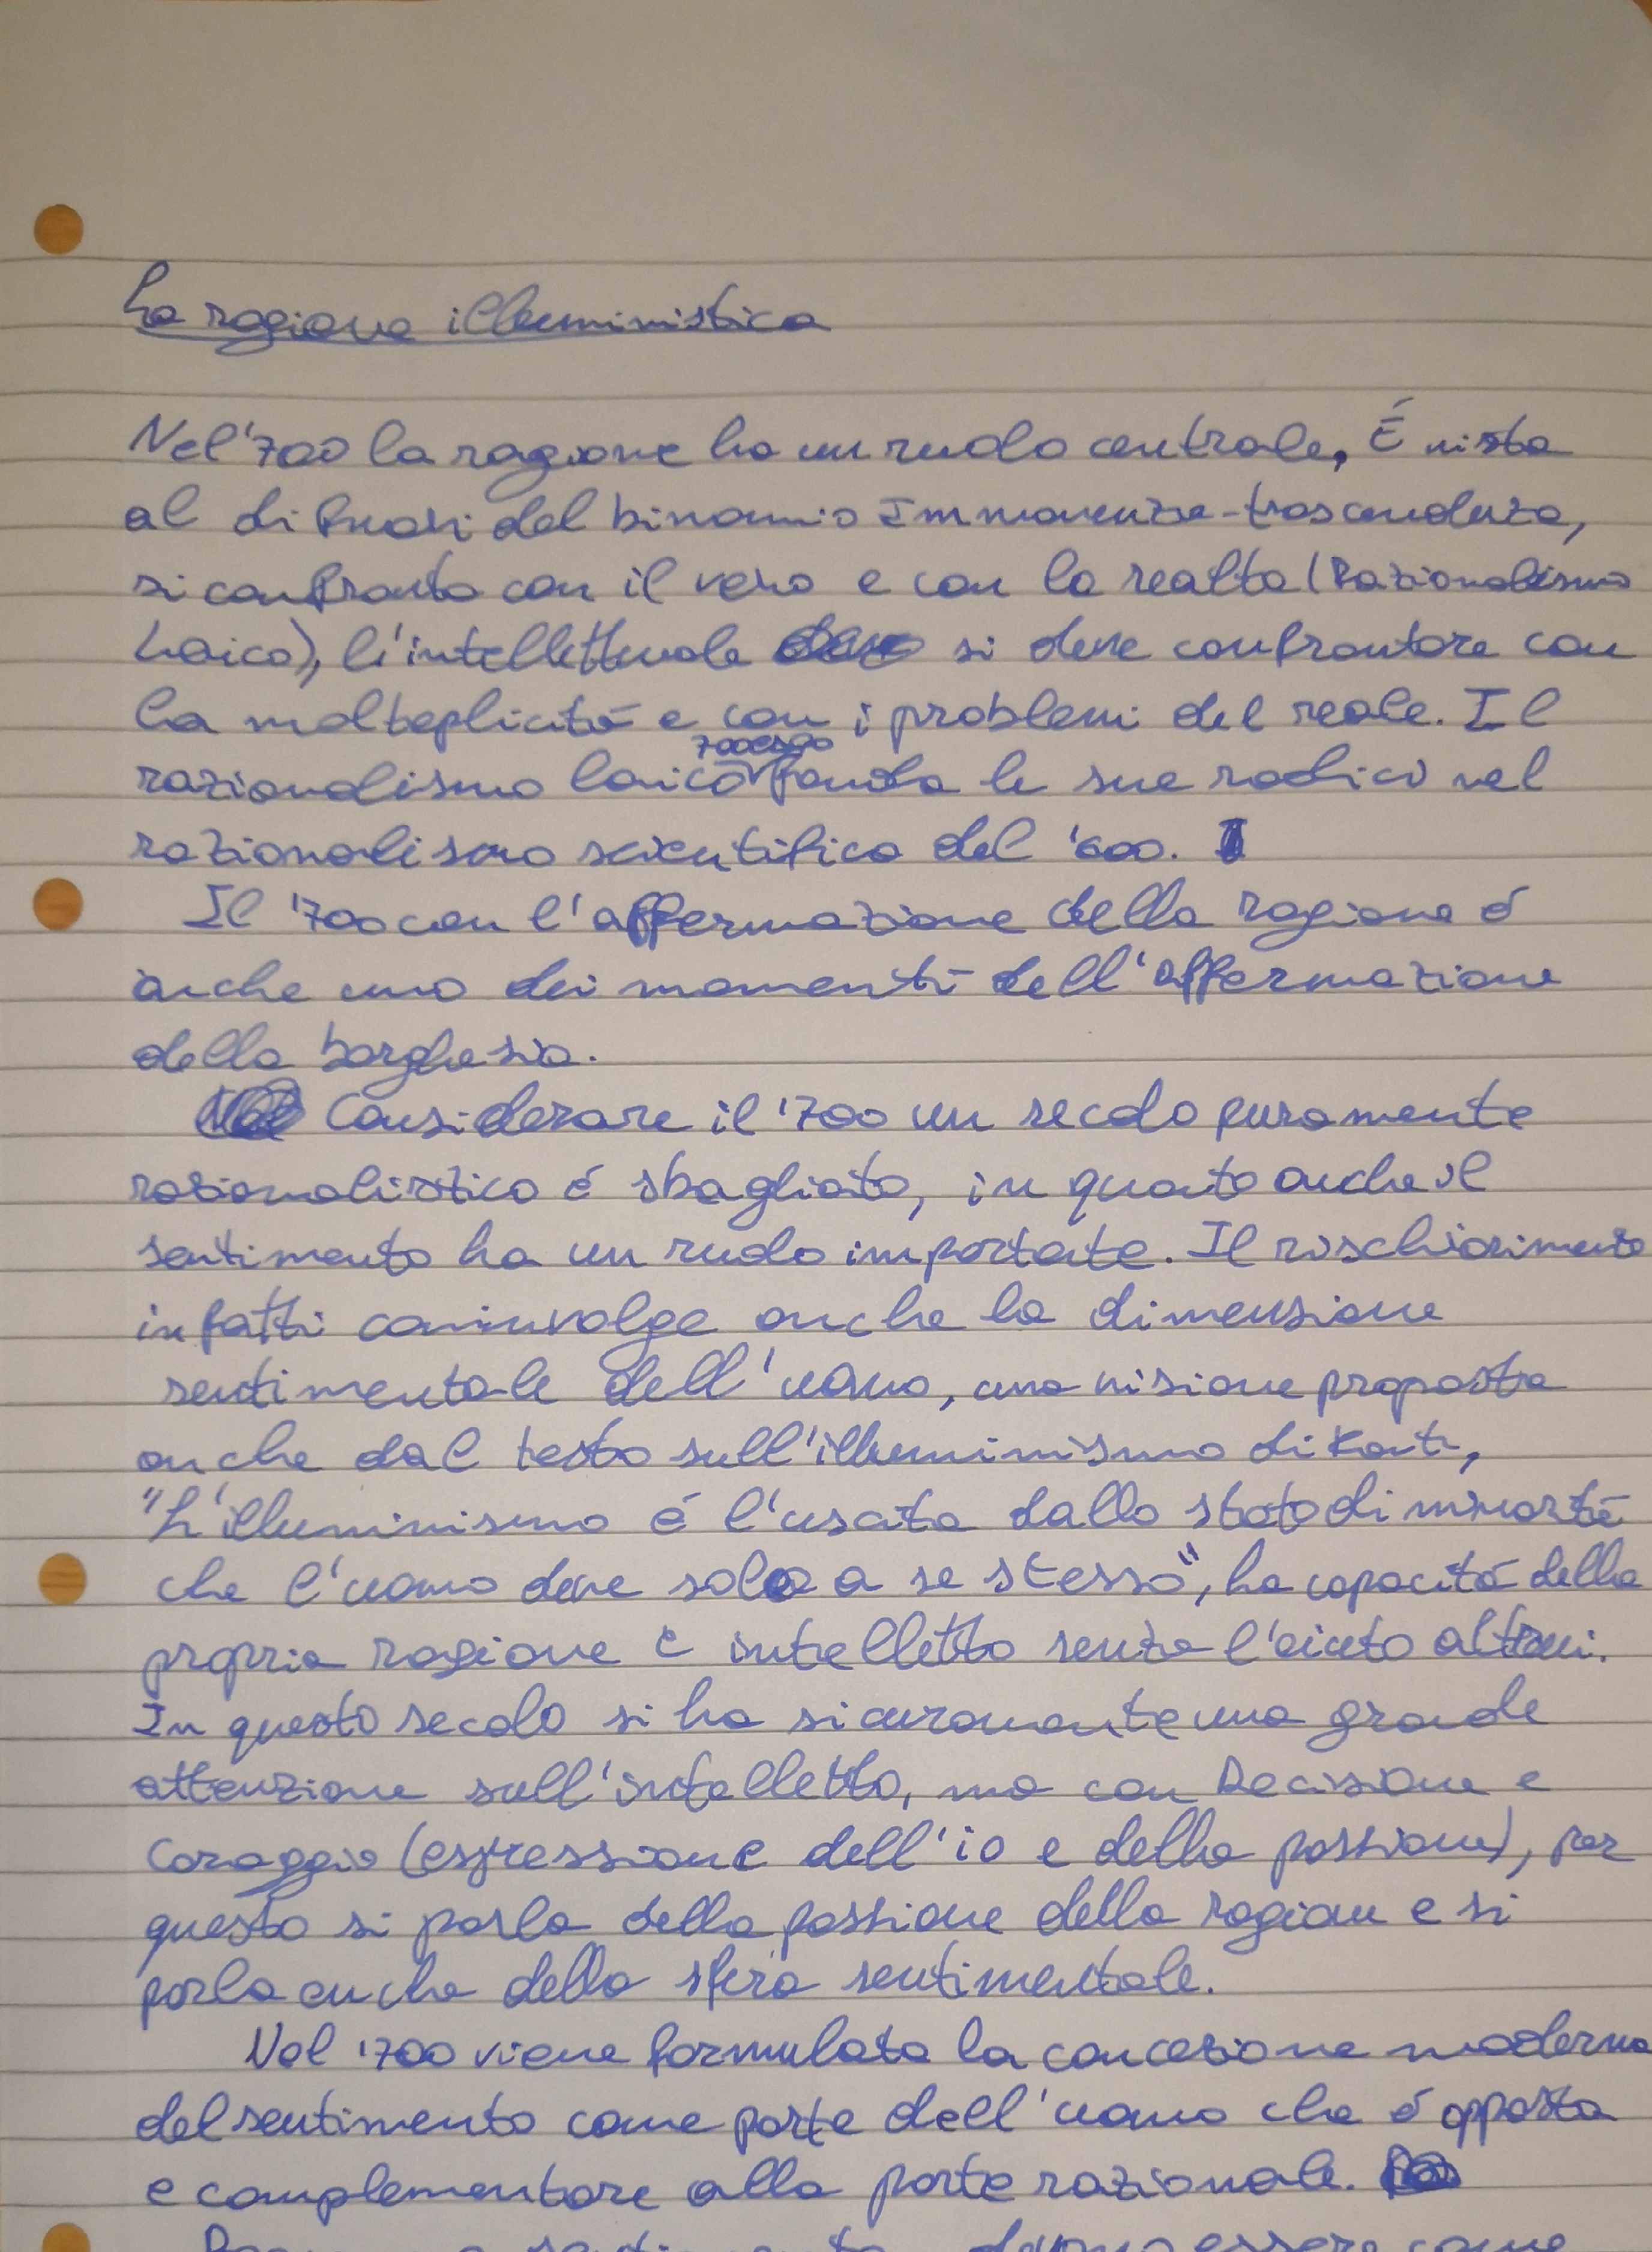 La ragione illuministica
Nel '700 la ragione ha un ruolo centrale. É vista
al di fuori del binomio Immanenza-trascendenza,
si confronta con il vero e con la realtà (Razionalismo
Laico), l'intellettuale si deve confrontare con
la molteplicitá e con i problemi del reale. Il
razionalismo laico 700esco fonda le sue radici nel
razionalismo scientifico del '600.
Il '700 con l'affermazione della ragione é
anche uno dei momenti dell'affermazione
della borghesia.
Considerare il '700 un secolo puramente
razionalistico é sbagliato, in quanto anche il
sentimento ha un ruolo importate. Il rischiarimento
infatti coninvolge anche la dimensione
sentimentale dell'uomo, una visione proposta
anche dal testo sull'illuminismo di Kant,
"L'illuminismo é l'uscita dallo stato di minoritá
che l'uomo deve solo a se stesso", ha capacitá della
propria ragione e intelletto senza l'aiuto altrui.
In questo secolo si ha sicuramente una grande
attenzione sull'intelletto, ma con Decisione e
Coraggio (espressione dell'io e della passione), per
questo si parla della passione della ragione e si
parla anche della sfera sentimentale.
Nel '700 viene formulata la concezione moderna
del sentimento come parte dell'uomo che é opposta
e complementare alla parte razionale.
sentimento devono essere come